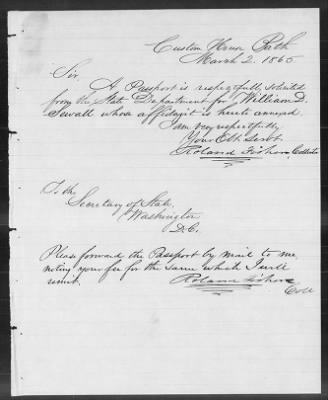 Custom House Bath
March 2. 1865
Sir,
A Passport is respectfully solicited
from the State Department for William D.
Sewall whose affidavit is hereto annexed.
I am very respectfully
Your Obt Servt
Roland Fisher Collector
To the
Secretary of State,
Washington
D.C.
Please forward the Passport by mail to me,
noting your fee for the same which I will
remit.
Roland Fisher
Coll